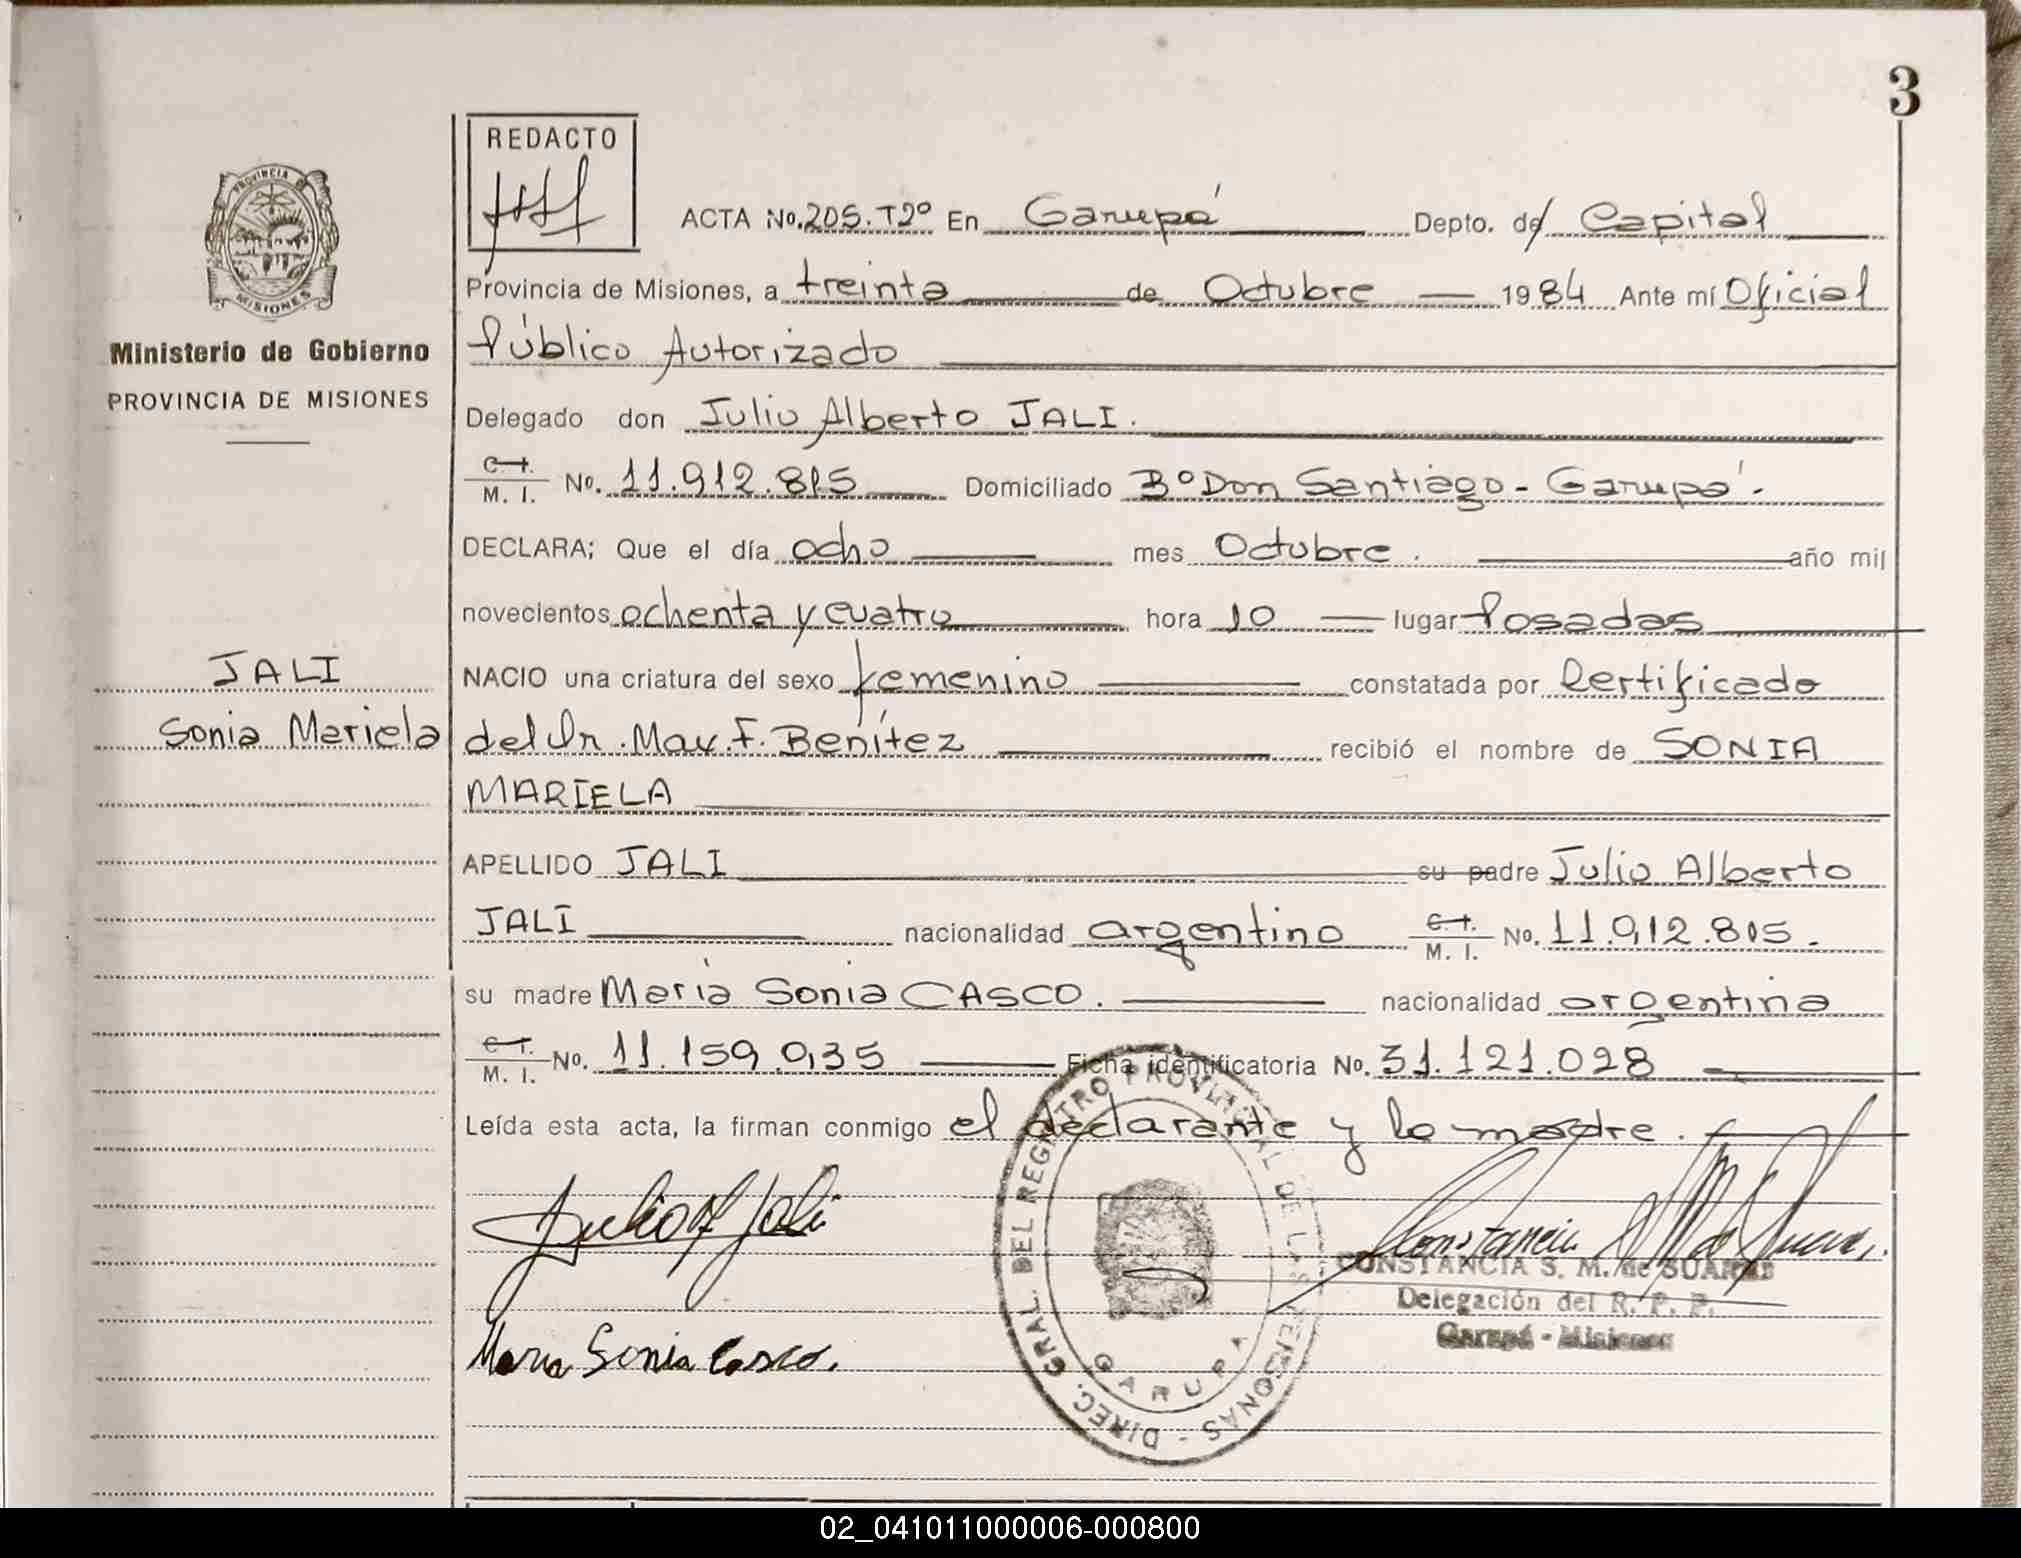 3
REDACTO
PROVINCIA DE
MISIONES
Ministerio de Gobierno
PROVINCIA DE MISIONES
JALI
Sonia Mariela
ACTA No. 205. T2º En Garupá Depto. de Capital
Provincia de Misiones, a treinta de Octubre 1984 Ante mí Oficial
Público Autorizado
Delegado don Julio Alberto JALI.
C. I. M. I. No. 11.912.815 Domiciliado Bº Don Santiago - Garupá.
DECLARA; Que el día ocho mes Octubre. año mil
novecientos ochenta y cuatro hora 10 lugar Posadas
NACIO una criatura del sexo femenino constatada por Certificado
del Dr. Max. F. Benítez recibió el nombre de SONIA
MARIELA
APELLIDO JALI su padre Julio Alberto
JALI nacionalidad argentino C. I. M. I. No. 11.912.815.
su madre María Sonia CASCO. nacionalidad argentina
C. I. M. I. No. 11.159.035 Ficha identificatoria No. 31.121.028
Leída esta acta, la firman conmigo el declarante y la madre.
Julio A Jali
Maria Sonia Casco.
DIREC. GRAL. DEL REGISTRO PROVINCIAL DE LAS PERSONAS -
GARUPA
CONSTANCIA S. M. de SUAREZ
Delegación del R. P. P.
Garupá - Misiones
02_041011000006-000800